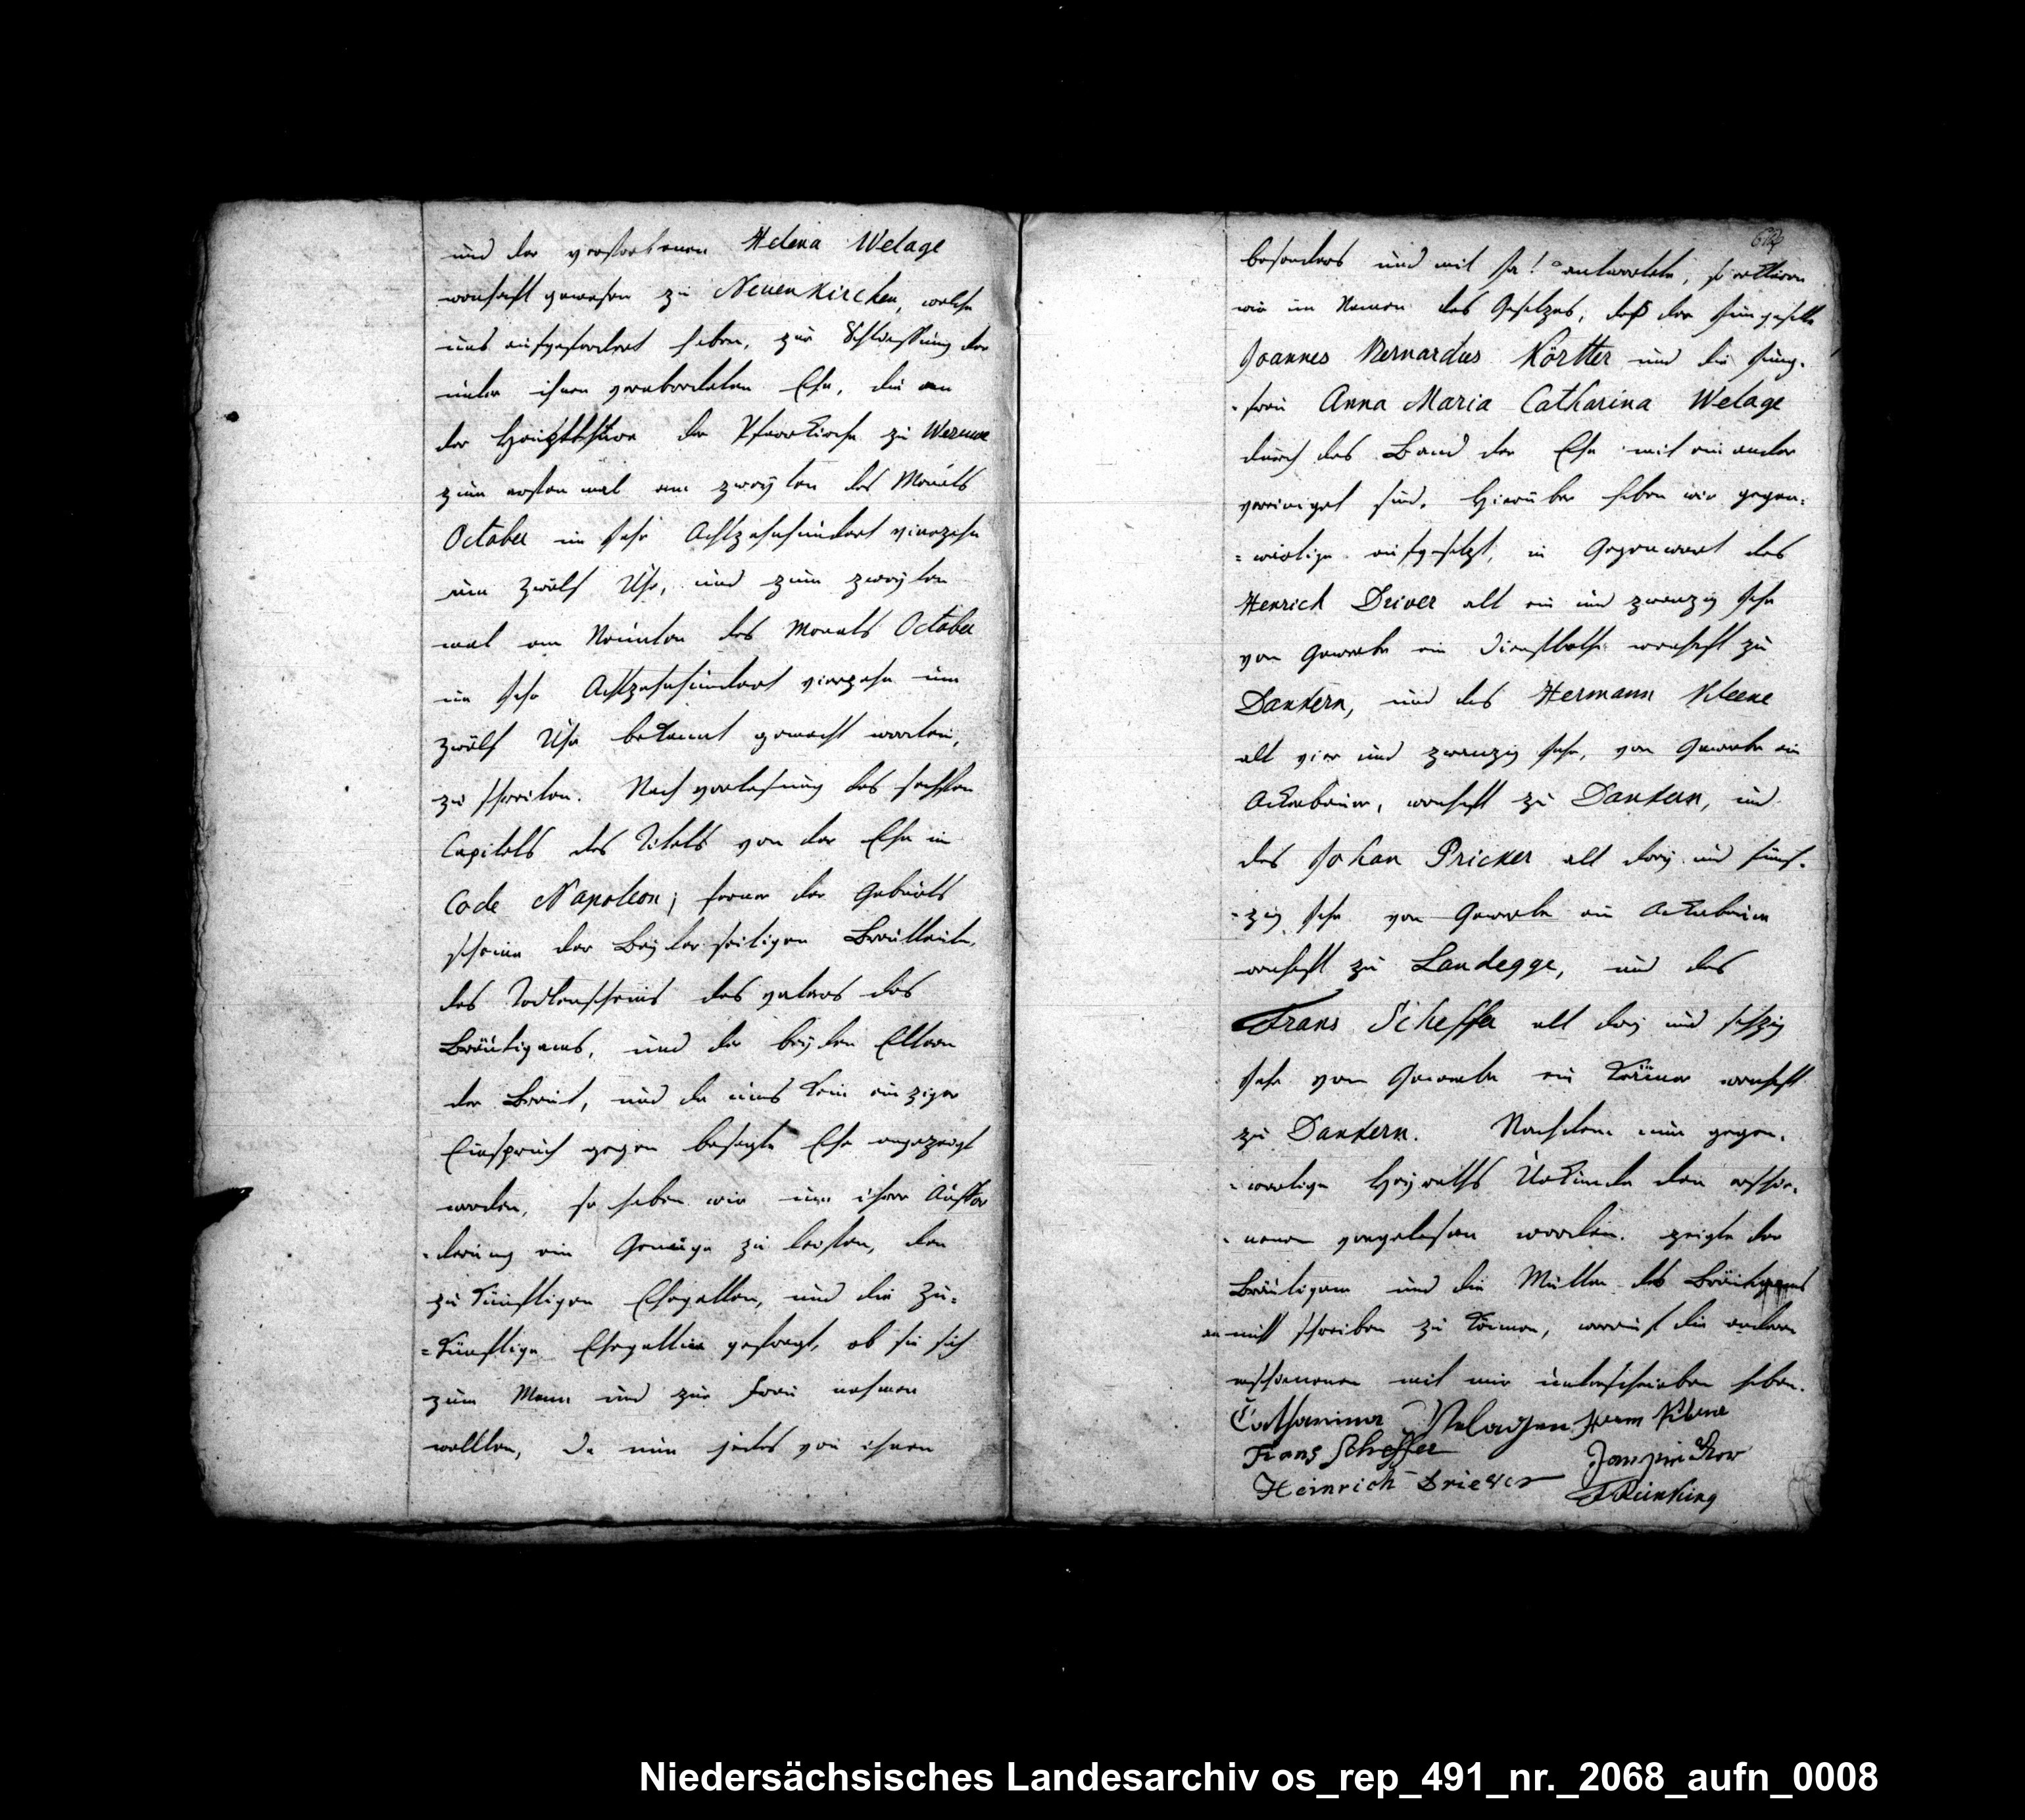 und der verstorbenen Helena Welage
wonhaft gewesen zu Neuenkirchen, welche
uns aufgefordert haben, zur Schliessung der
unter ihnen verabredeten Ehe, die an
der Hauptthüre der Pfarrkirche zu Wesuwe
zum ersten mal am zweyten des Monats
October im Jahr Achtzehnhundert vierzehn
um zwölf Uhr, und zum zweyten
mal am Neunten des Monats October
im Jahr Achtzehnhundert vierzehn um
zwölf Uhr bekannt gemacht worden,
zu schreiten. Nach vorlesung des sechsten
Capitels des Titels von der Ehe im
Code Napoleon; ferner der Geburts
scheine der Beyderseitigen Brautleute,
des Todtenscheins des vaters des
Bräutigams, und der beyden Eltern
der Braut, und da uns kein einziger
Einspruch gegen besagte Ehe angezeigt
worden, so haben wir um ihrer Auffor
=derung ein Genüge zu leisten, den
zukünftigen Ehegatten, und die zu=
=künftige Ehegattin gefragt, ob sie sich
zum Mann und zur Frau nehmen
wollten, Da nun jedes von ihnen
besonders und mit Ja! antwortete, so erklären
wir im Namen des Gesetzes, daß der Junggeselle
Joannes Bernardus Körtter und die Jung=
=frau Anna Maria Catharina Welage
durch das Band der Ehe mit einander
vereiniget sind. Hierüber haben wir gegen=
=wärtige aufgesetzt, in Gegenwart des
Henrich Driver alt ein und zwanzig Jahr
von Gewerbe ein Dienstbothe wonhaft zu
Dankern, und des Hermann Kleene
alt vier und zwanzig Jahr, von Gewerbe ein
Ackerbauer, wonhaft zu Dankern, und
des Johan Pricker alt drey und fünf=
=zig Jahr von Gewerbe ein Ackerbauer
wonhaft zu Landegge, und des
Frans Scheffer alt drey und sechzig
Jahr von Gewerbe ein Krämer wonhaft
zu Dankern. Nachdem nun gegen=
=wertige Heyraths Urkunde den erschie=
=nenen vorgelesen worden. zeigte der
Bräutigam und die Mutter des Bräutigams
an nicht schreiben zu können, worauf die andern
erschienenen mit mir unterschrieben haben.
Catharina Welagen Herm Kleene
Frans Scheffer Jan pricker
Heinrich Driever Reinking
Niedersächsisches Landesarchiv os_rep_491_nr._2068_aufn_0008